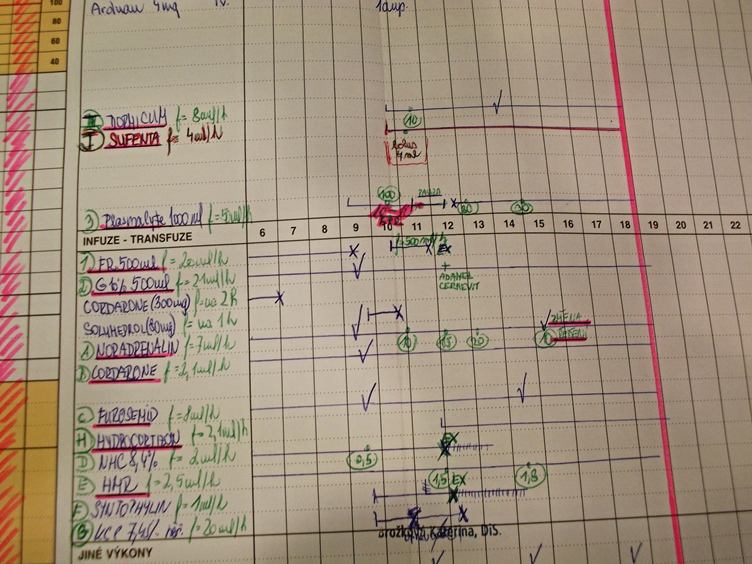 100
80
60
40
Arduan 4mg IV. 1amp.
II DORMICUM f= 8ml/h 10
I SUFENTA f= 4ml/h
bolus
4ml
3) Plasmalyte 1000ml f=5ml/h 100
INFUZE - TRANSFUZE 6 7 8 9 10 11 12 13 14 15 16 17 18 19 20 21 22
1) FR 500ml f= 20ml/h f=500ml/h EX
2) G5% 500ml f= 21ml/h + ADAMEL
CERNEVIT
CORDARONE (300mg) f= na 2h
SOLUMEDROL (80mg) f= na 1h ZMĚNA
A) NORADRENALIN f= 7ml/h 10 15 20 10 ŘEDĚNÍ
B) CORDARONE f= 2,1ml/h
C) FUROSEMID f= 1ml/h
H) HYDROCORTISON f= 2,1ml/h EX
D) NHC 8,4% f= 2ml/h 0,5
E) HMR f= 2,5ml/h 1,5 EX 1,8
F) SYNTOPHYLIN f= 1ml/h
G) KCP 7,45% f= 20ml/h Kateřina, DiS.
JINÉ VÝKONY